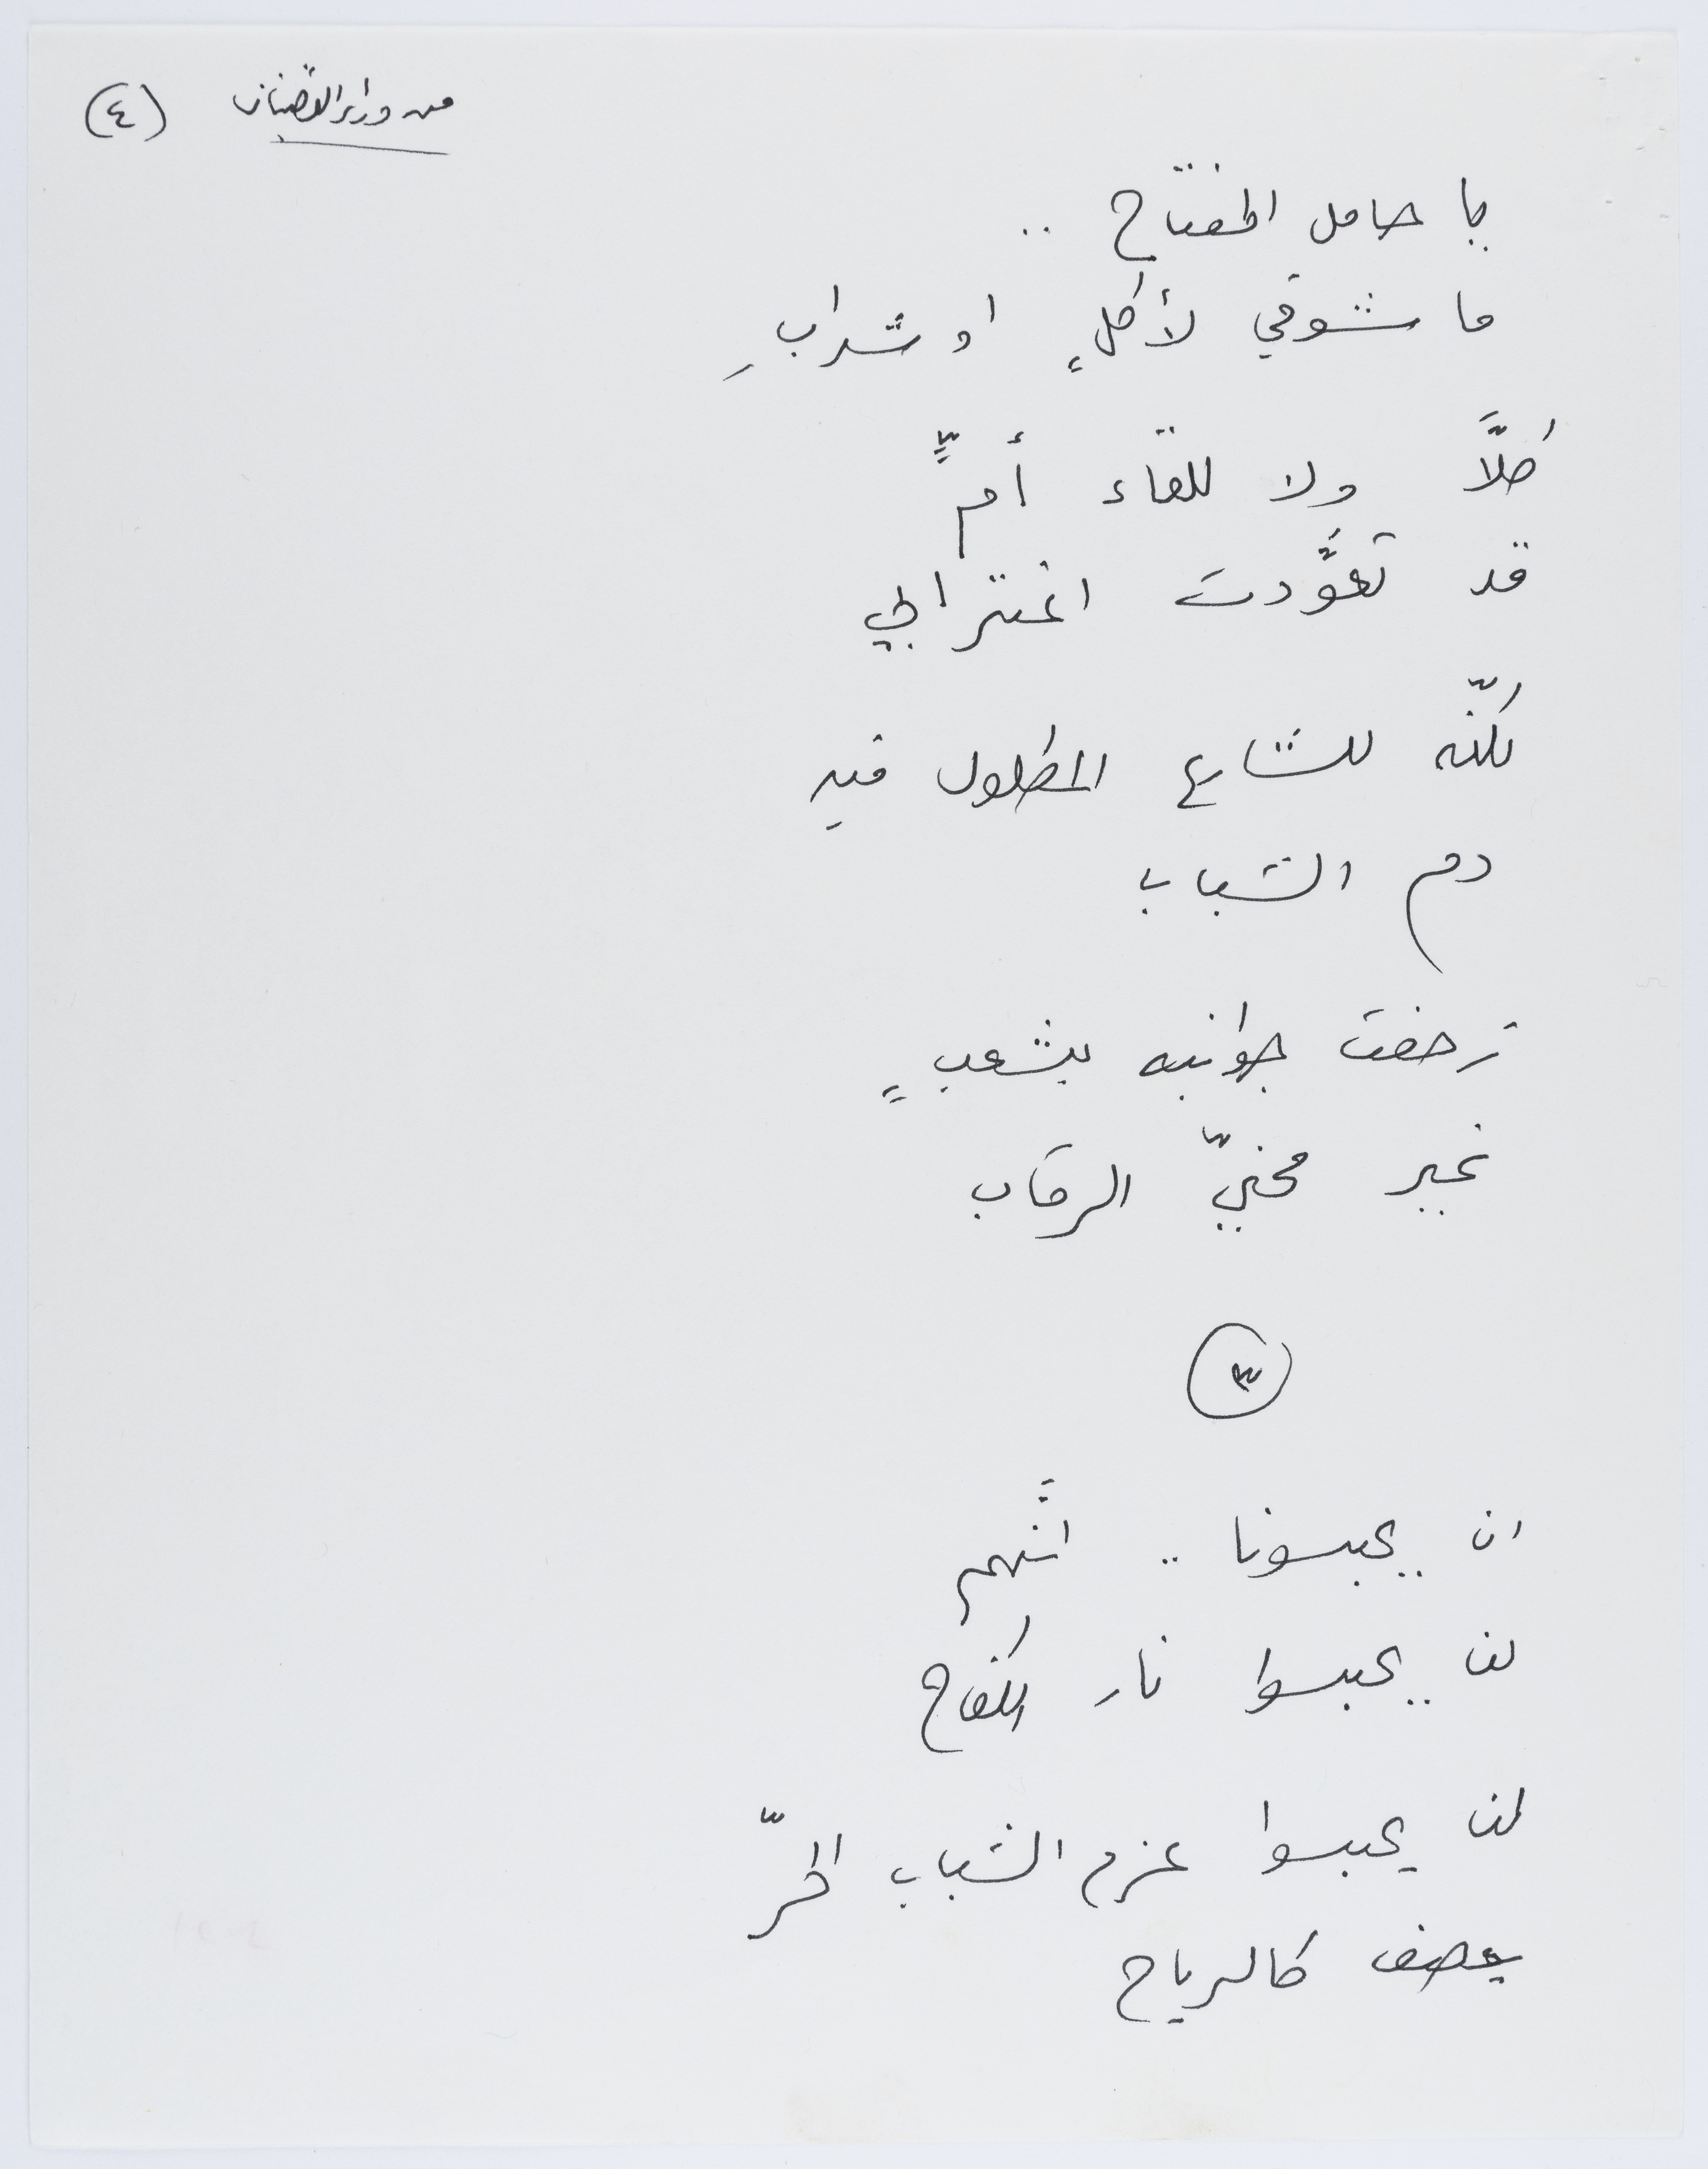 من وراء القضبان (٤)
يا حامل المفتاح ..
ما شوقي لأكلٍ او شرابِ
كلاَّ ولا للقاء أمٍّ
قد تعوَّدت اغترابي
لكنّه للشارع المطلول فيهِ
دم الشباب
زحفت جوانبه بشعبٍ
غير محنيّ الرقاب
٣
ان يحبسونا .. انَّهم
لن يحبسوا نار الكفاح
لن يحبسوا عزم الشباب الحرّ
يعصف كالرياح